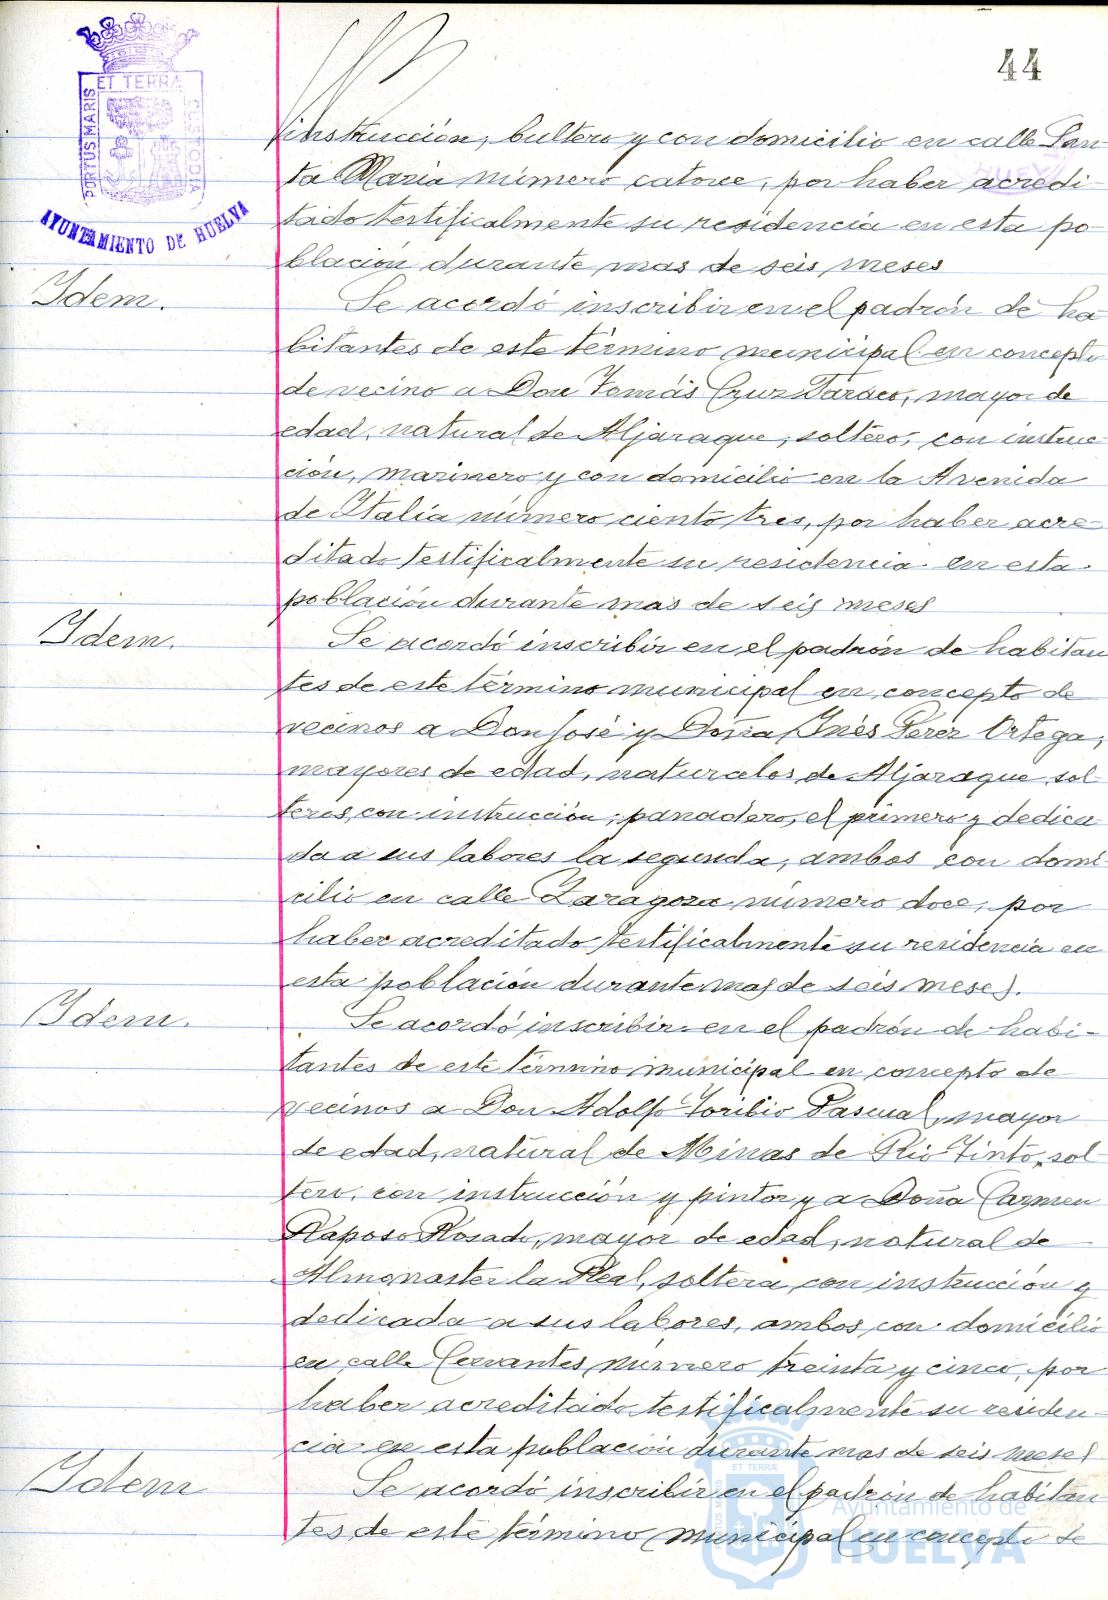 44
ET TERRA
PORTUS MARIS
CUSTODIA
AYUNTAMIENTO DE HUELVA
instrucción, bultero y con domicilio en calle San-
ta Maria número catorce, por haber acredi-
tado testificalmente su residencia en esta po-
blación durante mas de seis meses
Idem.
Se acordó inscribir en el padrón de ha-
bitantes de este término municipal en concepto
de vecino a Don Tomás Cruz Taraco, mayor de
edad, natural de Aljaraque, soltero, con instruc-
ción, marinero y con domicilio en la Avenida
de Italia número ciento tres, por haber acre-
ditado testificalmente su residencia en esta
población durante mas de seis meses
Idem.
Se acordó inscribir en el padrón de habitan-
tes de este término municipal en concepto de
vecinos a Don José y Doña Inés Pérez Ortega,
mayores de edad, naturales de Aljaraque, sol-
teros, con instrucción, panadero, el primero y dedica-
da a sus labores la segunda, ambos con domi-
cilio en calle Zaragoza número doce, por
haber acreditado testificalmente su residencia en
esta población durante mas de seis meses.
Idem.
Se acordó inscribir en el padrón de habi-
tantes de este término municipal en concepto de
vecinos a Don Adolfo Toribio Pascual, mayor
de edad, natural de Minas de Rio Tinto, sol-
tero, con instrucción y pintor y a Doña Carmen
Raposo Rosado, mayor de edad, natural de
Almonaster la Real, soltera, con instrucción y
dedicada a sus labores, ambos con domicilio
en calle Cervantes número treinta y cinco, por
haber acreditado testificalmente su residen-
cia en esta población durante mas de seis meses
Idem
Se acordó inscribir en el padrón de habitan-
tes de este término municipal en concepto de
ET TERRA
Ayuntamiento de
HUELVA